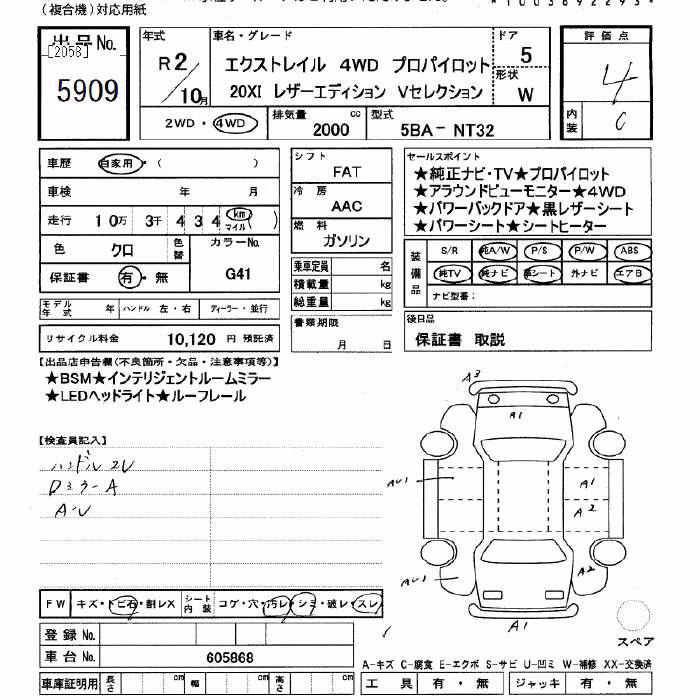 (複合機)対応用紙
*1003692293*
出品No.
[2058]
5909
年式
R2/10月
車名・グレード
エクストレイル 4WD プロパイロット
20XI レザーエディション Vセレクション
ドア
5
形状
W
評価点
4
内装
C
2WD・4WD
排気量
2000 cc
型式
5BA- NT32
車歴
自家用・( )
車検 年 月
走行 10万 3千 434 km マイル
色 クロ
色替
カラーNo.
G41
保証書 有・無
モデル年式 年
ハンドル 左・右
ディーラー・並行
リサイクル料金 10,120 円 預託済
シフト
FAT
冷房
AAC
燃料
ガソリン
乗車定員 名
積載量 kg
総重量 kg
書類期限
月 日
セールスポイント
★純正ナビ・TV★プロパイロット
★アラウンドビューモニター★4WD
★パワーバックドア★黒レザーシート
★パワーシート★シートヒーター
装備品
S/R 純A/W P/S P/W ABS
純TV 純ナビ 革シート 外ナビ エアB
ナビ型番:
後日品
保証書 取説
【出品店申告欄(不良箇所・欠品・注意事項等)】
★BSM★インテリジェントルームミラー
★LEDヘッドライト★ルーフレール
【検査員記入】
ハンドルスレ
Dミラー A
A・U
A3
A1
AU1
A1
A2
AU1
A2
A1
スペア
FW キズ・トビ石・割レX
シート内装 コゲ・穴・汚レ・シミ・破レ・スレ
登録No.
車台No. 605868
A-キズ C-腐食 E-エクボ S-サビ U-凹ミ W-補修 XX-交換済
車庫証明用 長さ cm 幅 cm 高さ cm
工具 有・無 ジャッキ 有・無